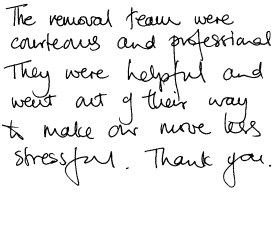 The removal team were
courteous and professional
They were helpful and
went out of their way
to make our move less
stressful. Thank you.